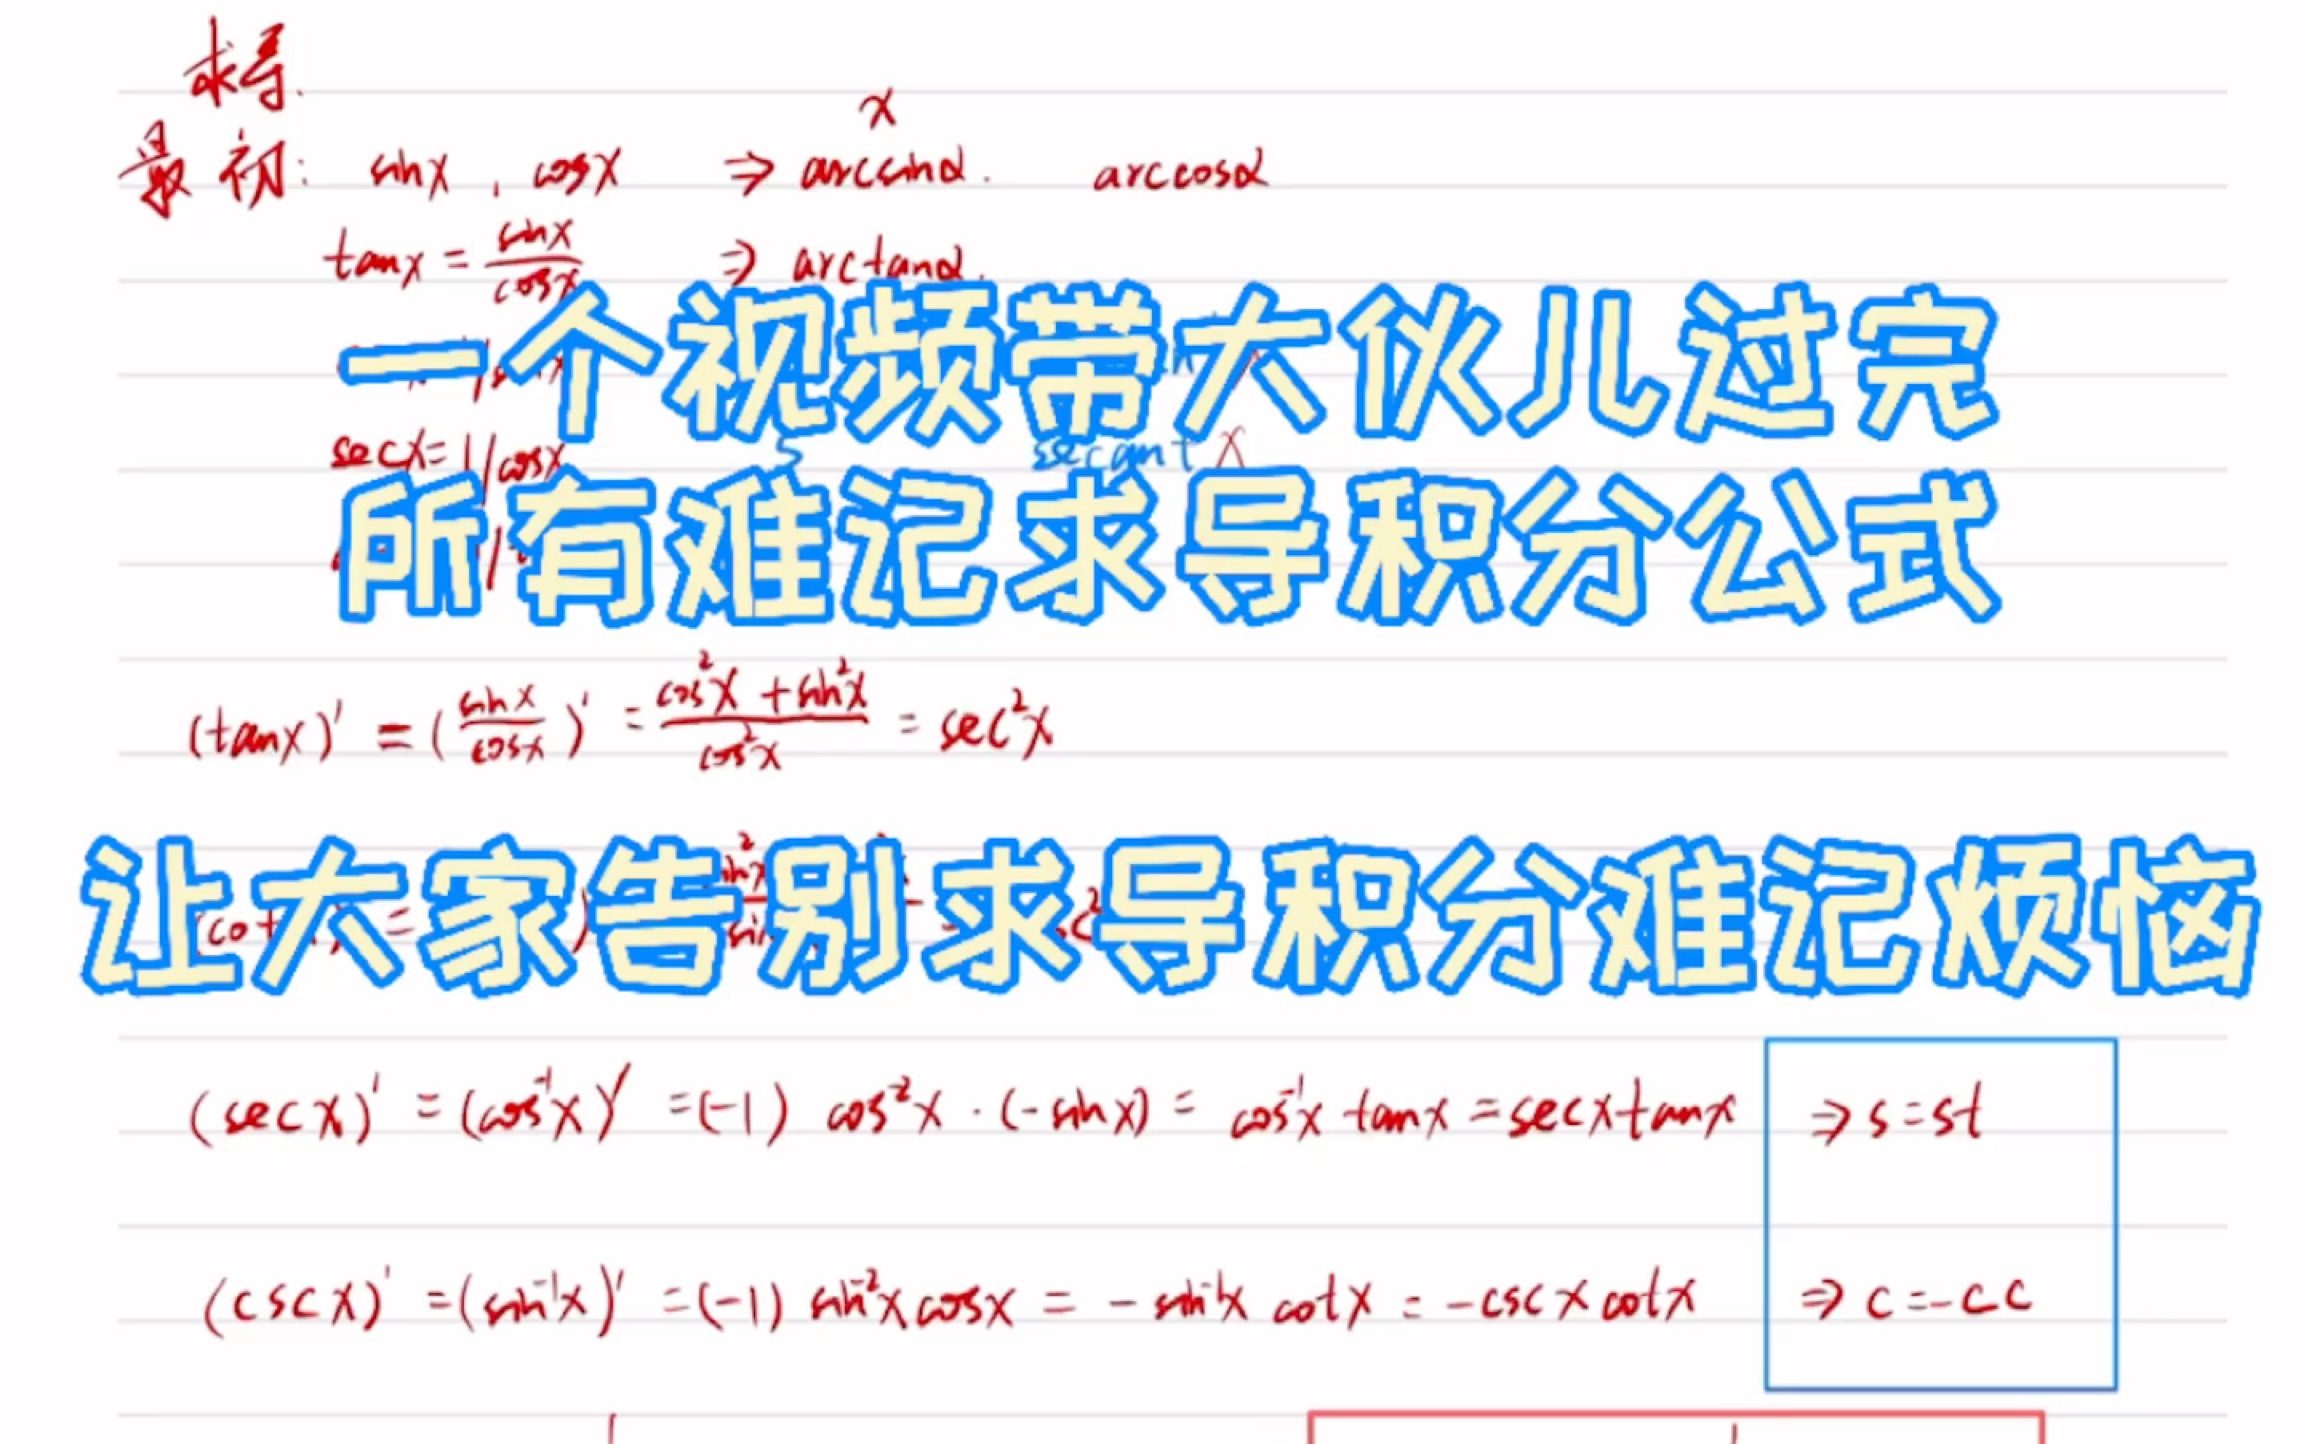 求导.
x
最初: sinx , cosx ⇒ arcsinα. arccosα
tanx = sinx/cosx ⇒ arctanα.
一个视频带大伙儿过完
secx = 1/cosx secant x
所有难记求导积分公式
(tanx)' = (sinx/cosx)' = (cos²x + sin²x)/cos²x = sec²x
让大家告别求导积分难记烦恼
(secx)' = (cos⁻¹x)' = (-1) cos⁻²x · (-sinx) = cos⁻¹x tanx = secxtanx ⇒ s = st
(cscx)' = (sin⁻¹x)' = (-1) sin⁻²x cosx = - sin⁻¹x cotx = -cscxcotx ⇒ c = -cc